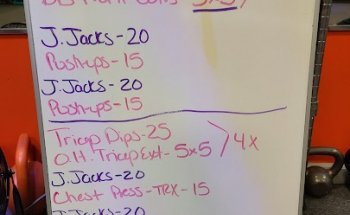 5x5
J.Jacks-20
Push-ups-15
J.Jacks-20
Push-ups-15
Tricep Dips-25
O.H. Tricep Ext-5x5 > 4x
J.Jacks-20
Chest Press-TRX-15
J.Jacks-20